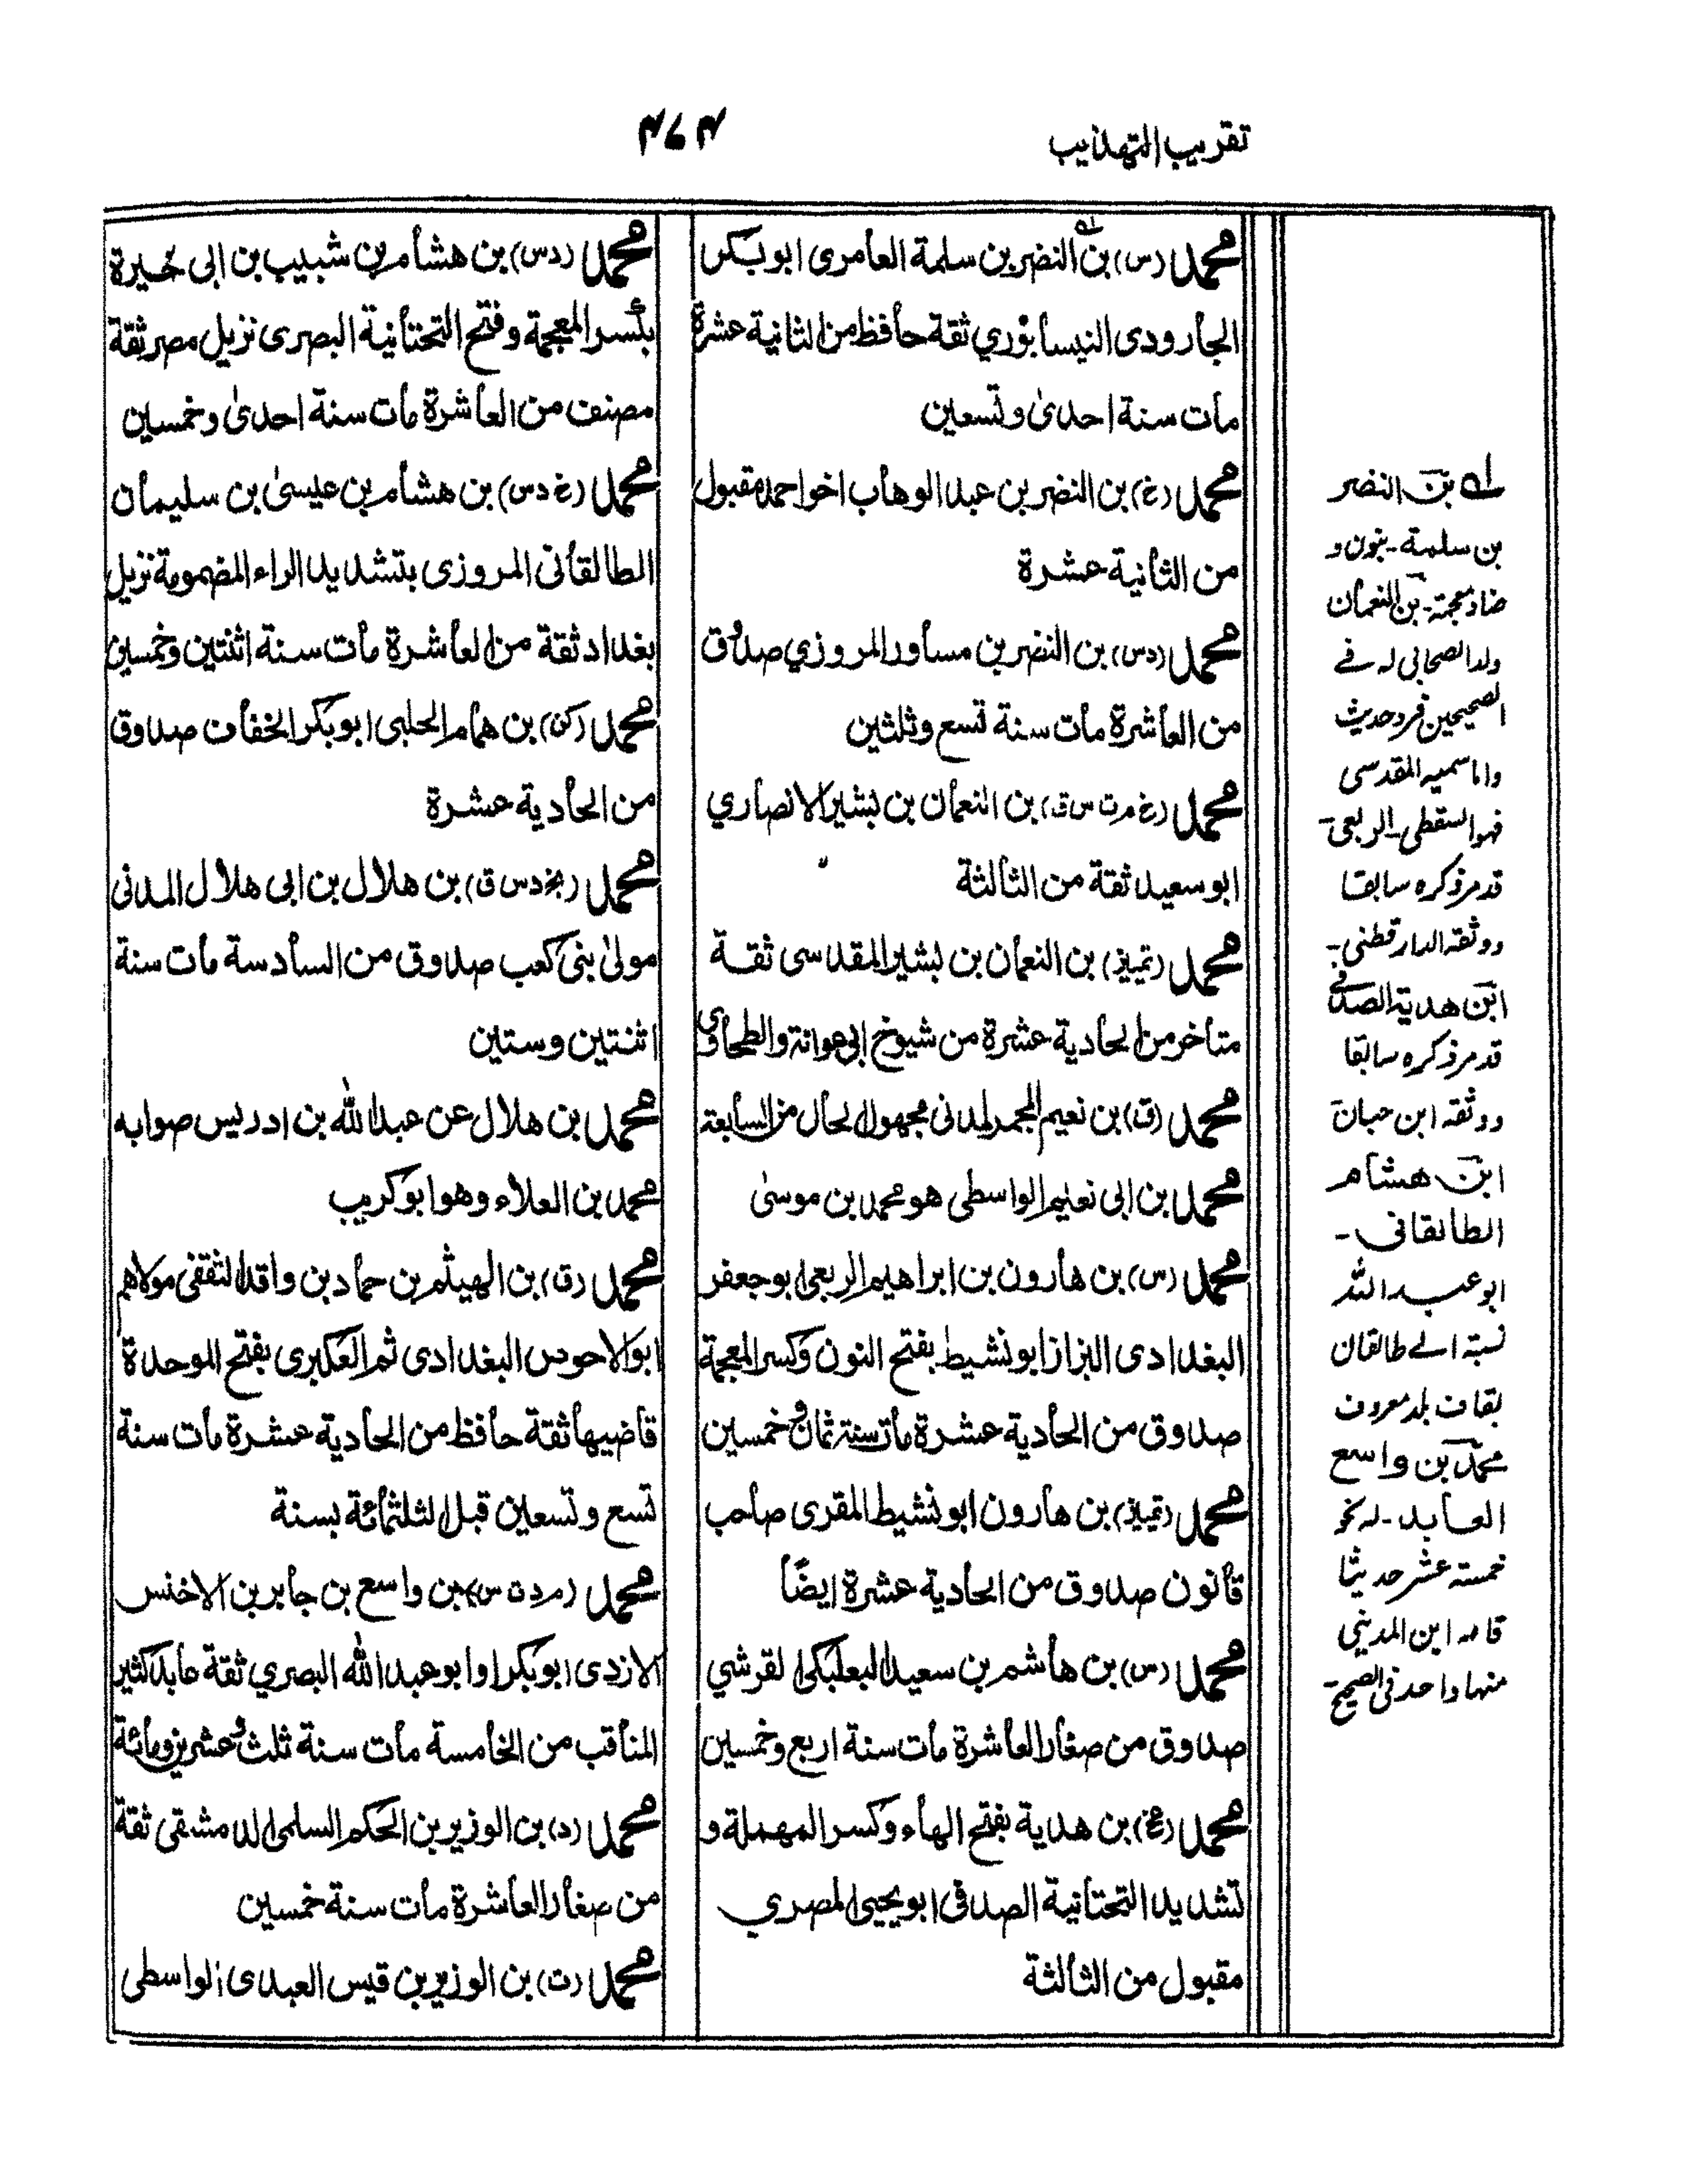 تقريب التهذيب
٤٧٤
محمد (س) بن النضر بن سلمة العامرى ابو بكر
الجارودى النيسابوري ثقة حافظ من الثانية عشرة
مات سنة احدىٰ وتسعين
محمد (خ) بن النضر بن عبد الوهاب اخو احمد مقبول
من الثانية عشرة
محمد (دس) بن النضر بن مساور المروزي صدوق
من العاشرة مات سنة تسع وثلثين
محمد (خ م ت س ق) بن النعمان بن بشير الانصاري
ابو سعيد ثقة من الثالثة
محمد (تمييز) بن النعمان بن بشير المقدسى ثقة
متاخر من الحادية عشرة من شيوخ ابى عوانة والطحاوي
محمد (ق) بن نعيم المجمر المدنى مجهول الحال من السابعة
محمد بن ابى نعيم الواسطى هو محمد بن موسىٰ
محمد (س) بن هارون بن ابراهيم الربعى ابو جعفر
البغدادى البزاز ابو نشيط بفتح النون وكسر المعجمة
صدوق من الحادية عشرة مات سنة ثمان وخمسين
محمد (تمييز) بن هارون ابو نشيط المقرى صاحب
قانون صدوق من الحادية عشرة ايضًا
محمد (س) بن هاشم بن سعيد البعلبكى القرشي
صدوق من صغار العاشرة مات سنة اربع وخمسين
محمد (عخ) بن هدية بفتح الهاء وكسر المهملة و
تشديد التحتانية الصدفى ابو يحيى المصري
مقبول من الثالثة
محمد (دس) بن هشام بن شبيب بن ابى خيرة
بكسر المعجمة وفتح التحتانية البصرى نزيل مصر ثقة
مصنف من العاشرة مات سنة احدىٰ وخمسين
محمد (خ دس) بن هشام بن عيسىٰ بن سليمان
الطالقانى المروزى بتشديد الراء المضمومة نزيل
بغداد ثقة من العاشرة مات سنة اثنتين وخمسين
محمد (كن) بن همام الحلبى ابو بكر الخفاف صدوق
من الحادية عشرة
محمد (بخ دس ق) بن هلال بن ابى هلال المدنى
مولىٰ بنى كعب صدوق من السادسة مات سنة
اثنتين وستين
محمد بن هلال عن عبد الله بن ادريس صوابه
محمد بن العلاء وهو ابو كريب
محمد (ق) بن الهيثم بن حماد بن واقد الثقفى مولاهم
ابو الاحوص البغدادى ثم العكبرى بفتح الموحدة
قاضيها ثقة حافظ من الحادية عشرة مات سنة
تسع وتسعين قبل الثلثمائة بسنة
محمد (م د ت س) بن واسع بن جابر بن الاخنس
الازدى ابو بكر او ابو عبد الله البصري ثقة عابد كثير
المناقب من الخامسة مات سنة ثلث وعشرين ومائة
محمد (د) بن الوزير بن الحكم السلمى الدمشقى ثقة
من صغار العاشرة مات سنة خمسين
محمد (ت) بن الوزير بن قيس العبدى الواسطى
له بن النضر
بن سلمة - بنون و
ضاد معجمة - بن النعمان
ولد الصحابى له فے
الصحيحين فرد حديث
واما سميه المقدسى
فهو السقطى - الربعى -
قد مر ذكره سابقا
ووثقه الدارقطنى -
ابن هدية الصدفے
قد مر ذكره سابقا
ووثقه ابن حبان
ابن هشام
الطالقانى -
ابو عبد الله
نسبة الے طالقان
بقاف بلد معروف
محمد بن واسع
العابد - له نحو
خمسة عشر حديثا
قاله ابن المدينى
منها واحد فى الصحيح -